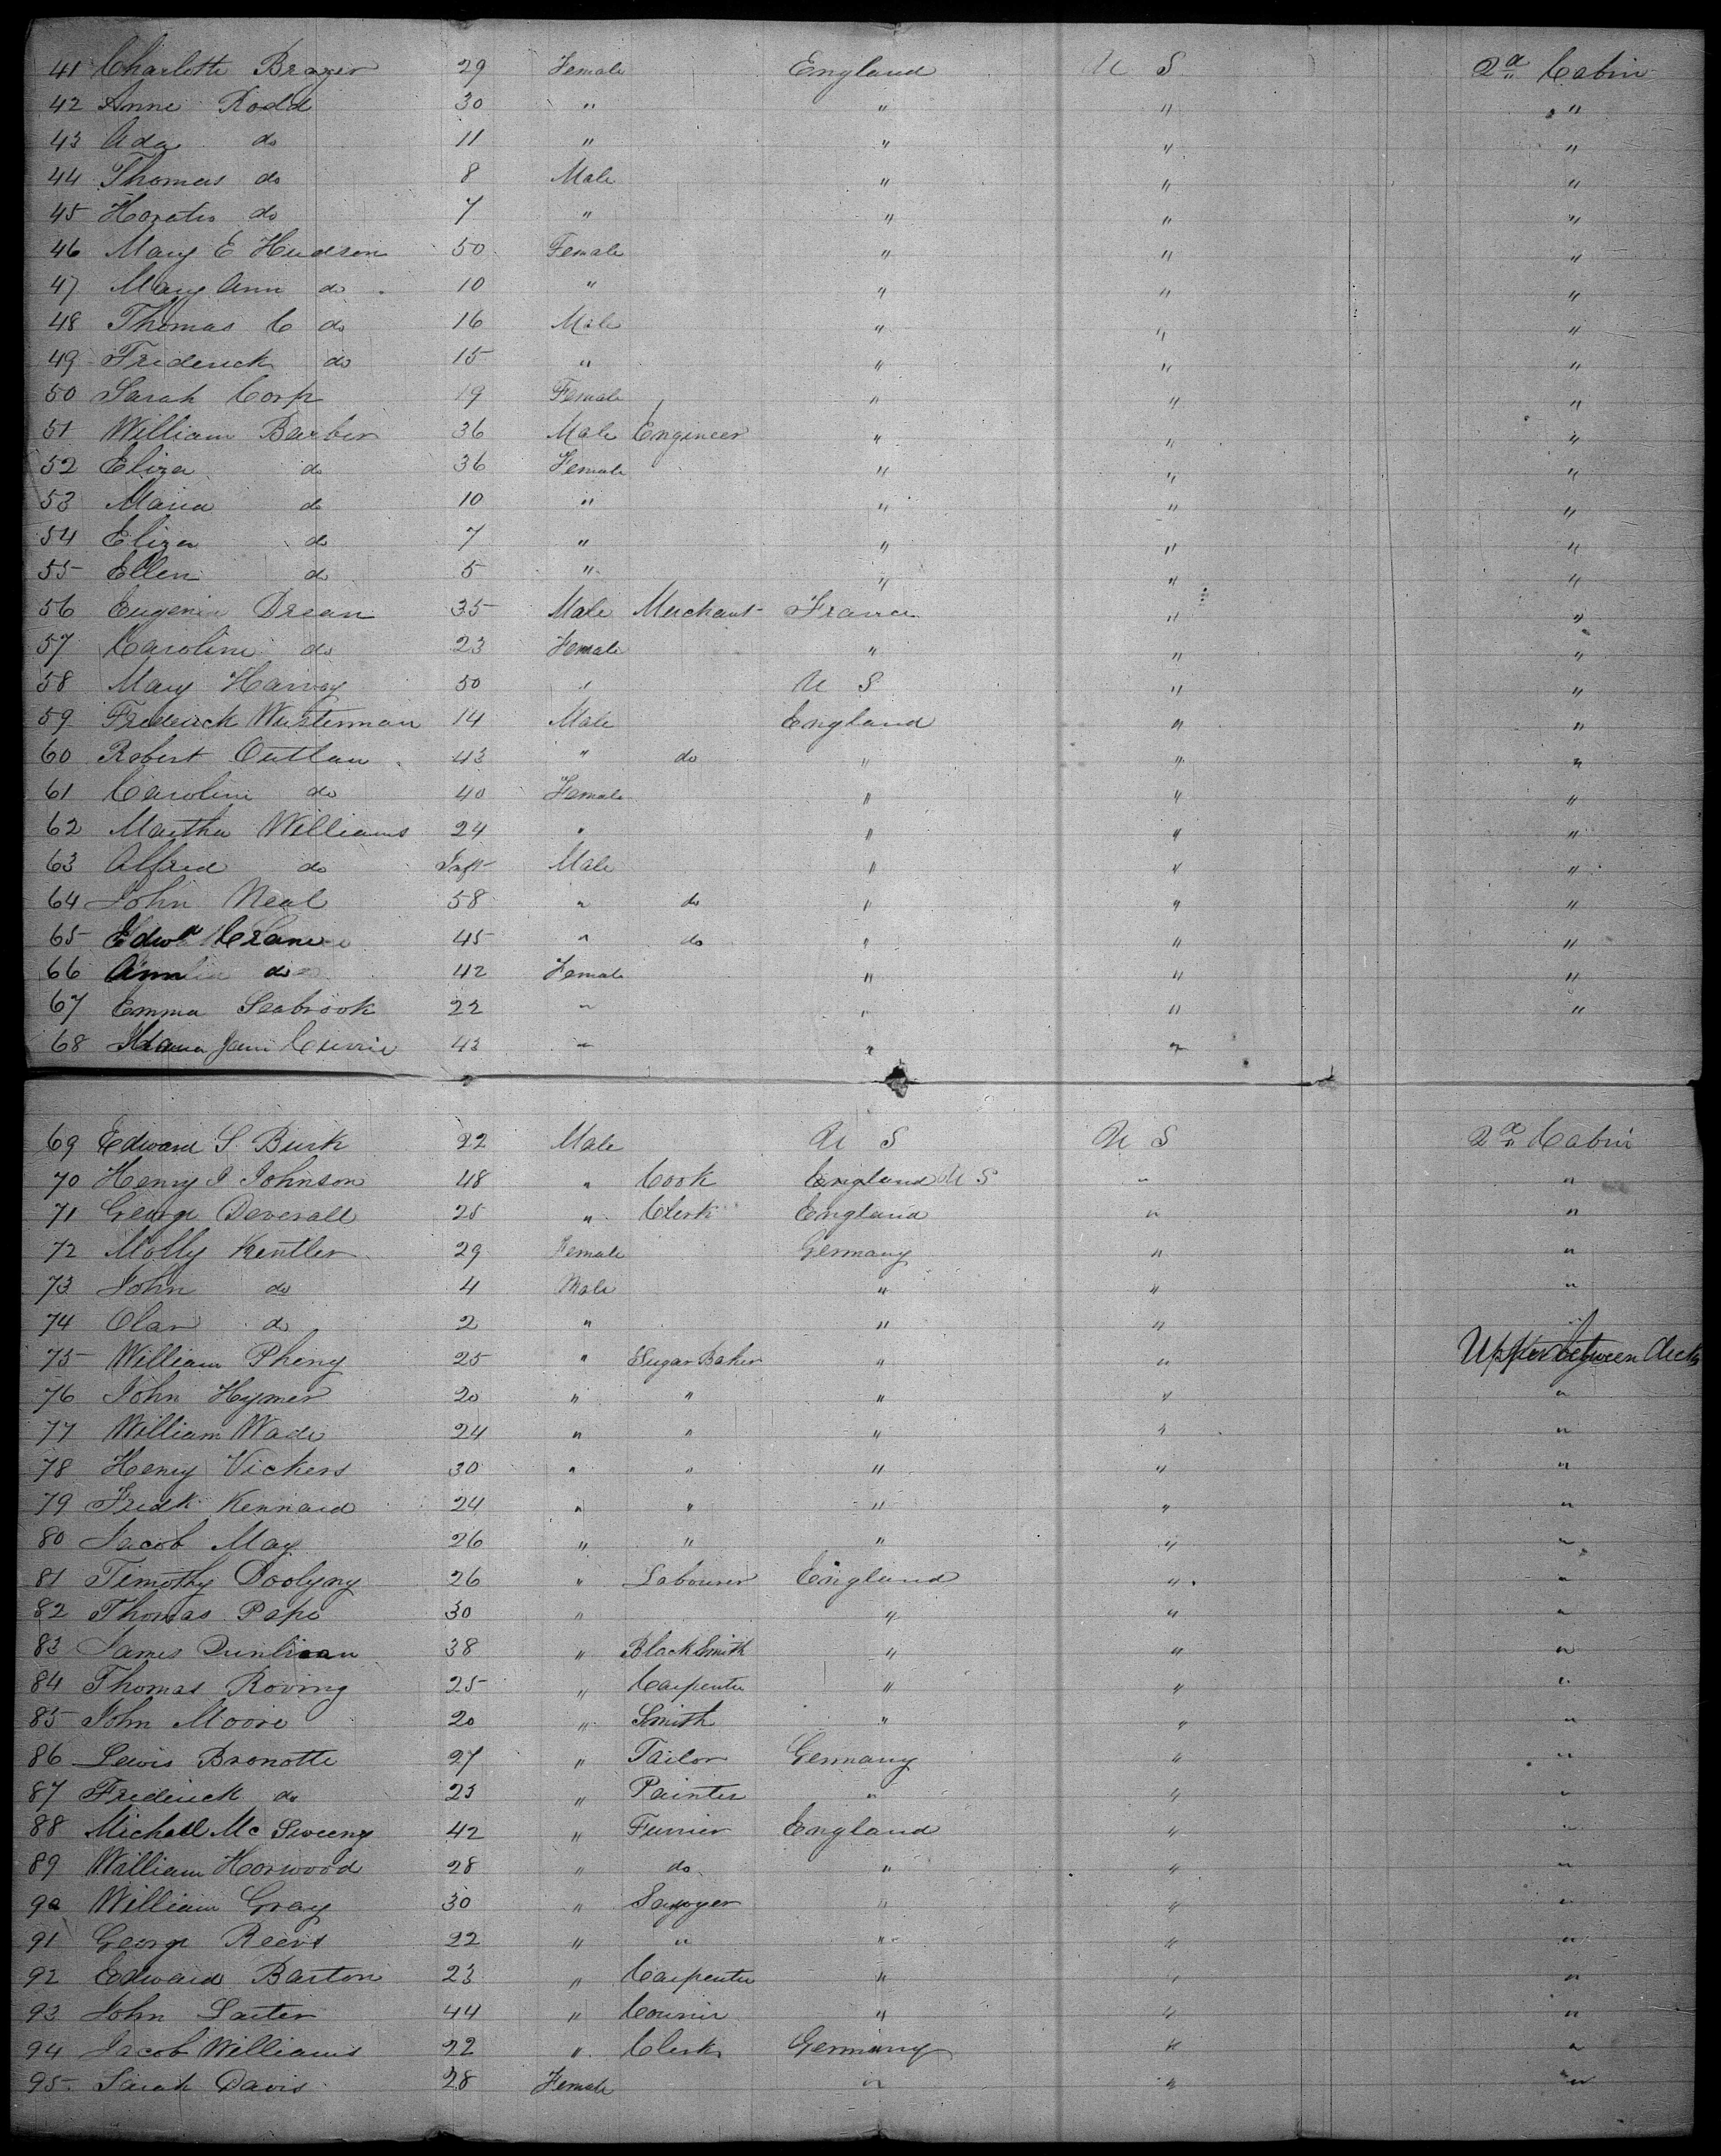 41 Charlotte Brazer 29 Female England U S 2d Cabin
42 Anne Rodd 30 " " " "
43 Ada do 11 " " " "
44 Thomas do 8 Male " " "
45 Horatio do 7 " " " "
46 Mary E Hudson 50 Female " " "
47 Mary Ann do 10 " " " "
48 Thomas C do 16 Male " " "
49 Frederick do 15 " " " "
50 Sarah Corp 19 Female " " "
51 William Barber 36 Male Engineer " " "
52 Eliza do 36 Female " " "
53 Maria do 10 " " " "
54 Eliza do 7 " " " "
55 Ellen do 5 " " " "
56 Eugenie Drean 35 Male Merchant France " "
57 Caroline do 23 Female " " "
58 Mary Harvey 50 " U S " "
59 Frederick Westerman 14 Male England " "
60 Robert Outlaw 43 " do " " "
61 Caroline do 40 Female " " "
62 Martha Williams 24 " " " "
63 Alfred do Inft Male " " "
64 John Neal 58 " do " " "
65 Edwd Crane 45 " do " " "
66 do 42 Female " " "
67 Emma Seabrook 22 " " " "
68 Jane Currie 43 " " "
69 Edward S Burk 22 Male U S U S 2d Cabin
70 Henry J Johnson 48 " Cook England U S " "
71 George Deverall 25 " Clerk England " "
72 Molly Kentler 29 Female Germany " "
73 John do 4 Male " " "
74 Olar do 2 " " " "
75 William Pheny 25 " Sugar Baker " " Upper between decks
76 John Hymer 20 " " " " "
77 William Wade 24 " " " " "
78 Henry Vickers 30 " " " " "
79 Fredk Kennard 24 " " " " "
80 Jacob May 26 " " " " "
81 Timothy 26 " Labourer England " "
82 Thomas Pape 30 " " " "
83 James 38 " Black Smith " " "
84 Thomas Roving 25 " Carpenter " " "
85 John Moore 20 " Smith " " "
86 Lewis Bronotte 27 " Tailor Germany " "
87 Frederick do 23 " Painter " " "
88 Michael Mc Sweeny 42 " Furrier England " "
89 William Horwood 28 " do " " "
90 William Gray 30 " Sawyer " " "
91 George Reevs 22 " " " " "
92 Edward Barton 23 " Carpenter " " "
93 John 44 " " " "
94 Jacob Williams 22 " Clerk Germany " "
95 Sarah Davis 28 Female " " "